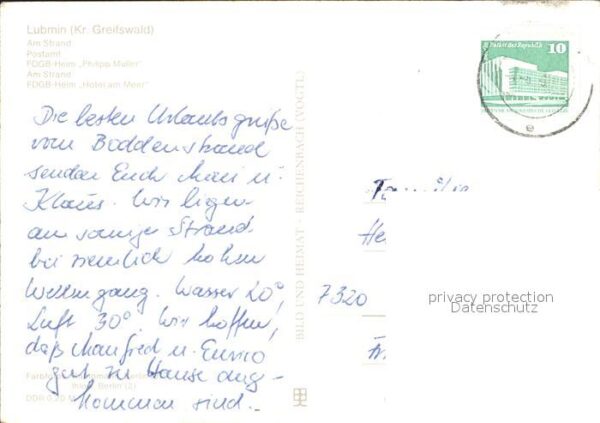 Lubmin (Kr. Greifswald)
Am Strand
Postamt
FDGB-Heim „Philipp Müller"
Am Strand
FDGB-Heim „Hotel am Meer"
Die besten Urlaubsgrüße
vom Boddenstrand
senden Euch Mari u.
Klaus. Wir liegen
am Strand
bei ziemlich hohem
Wellengang. Wasser 20°,
Luft 30°. Wir hoffen,
daß Manfred u. Enrico
gut zu Hause ange-
kommen sind.
BILD UND HEIMAT · REICHENBACH (VOGTL)
Palast der Republik
10
Familie
He
7320
privacy protection
Datenschutz
Berlin (2)